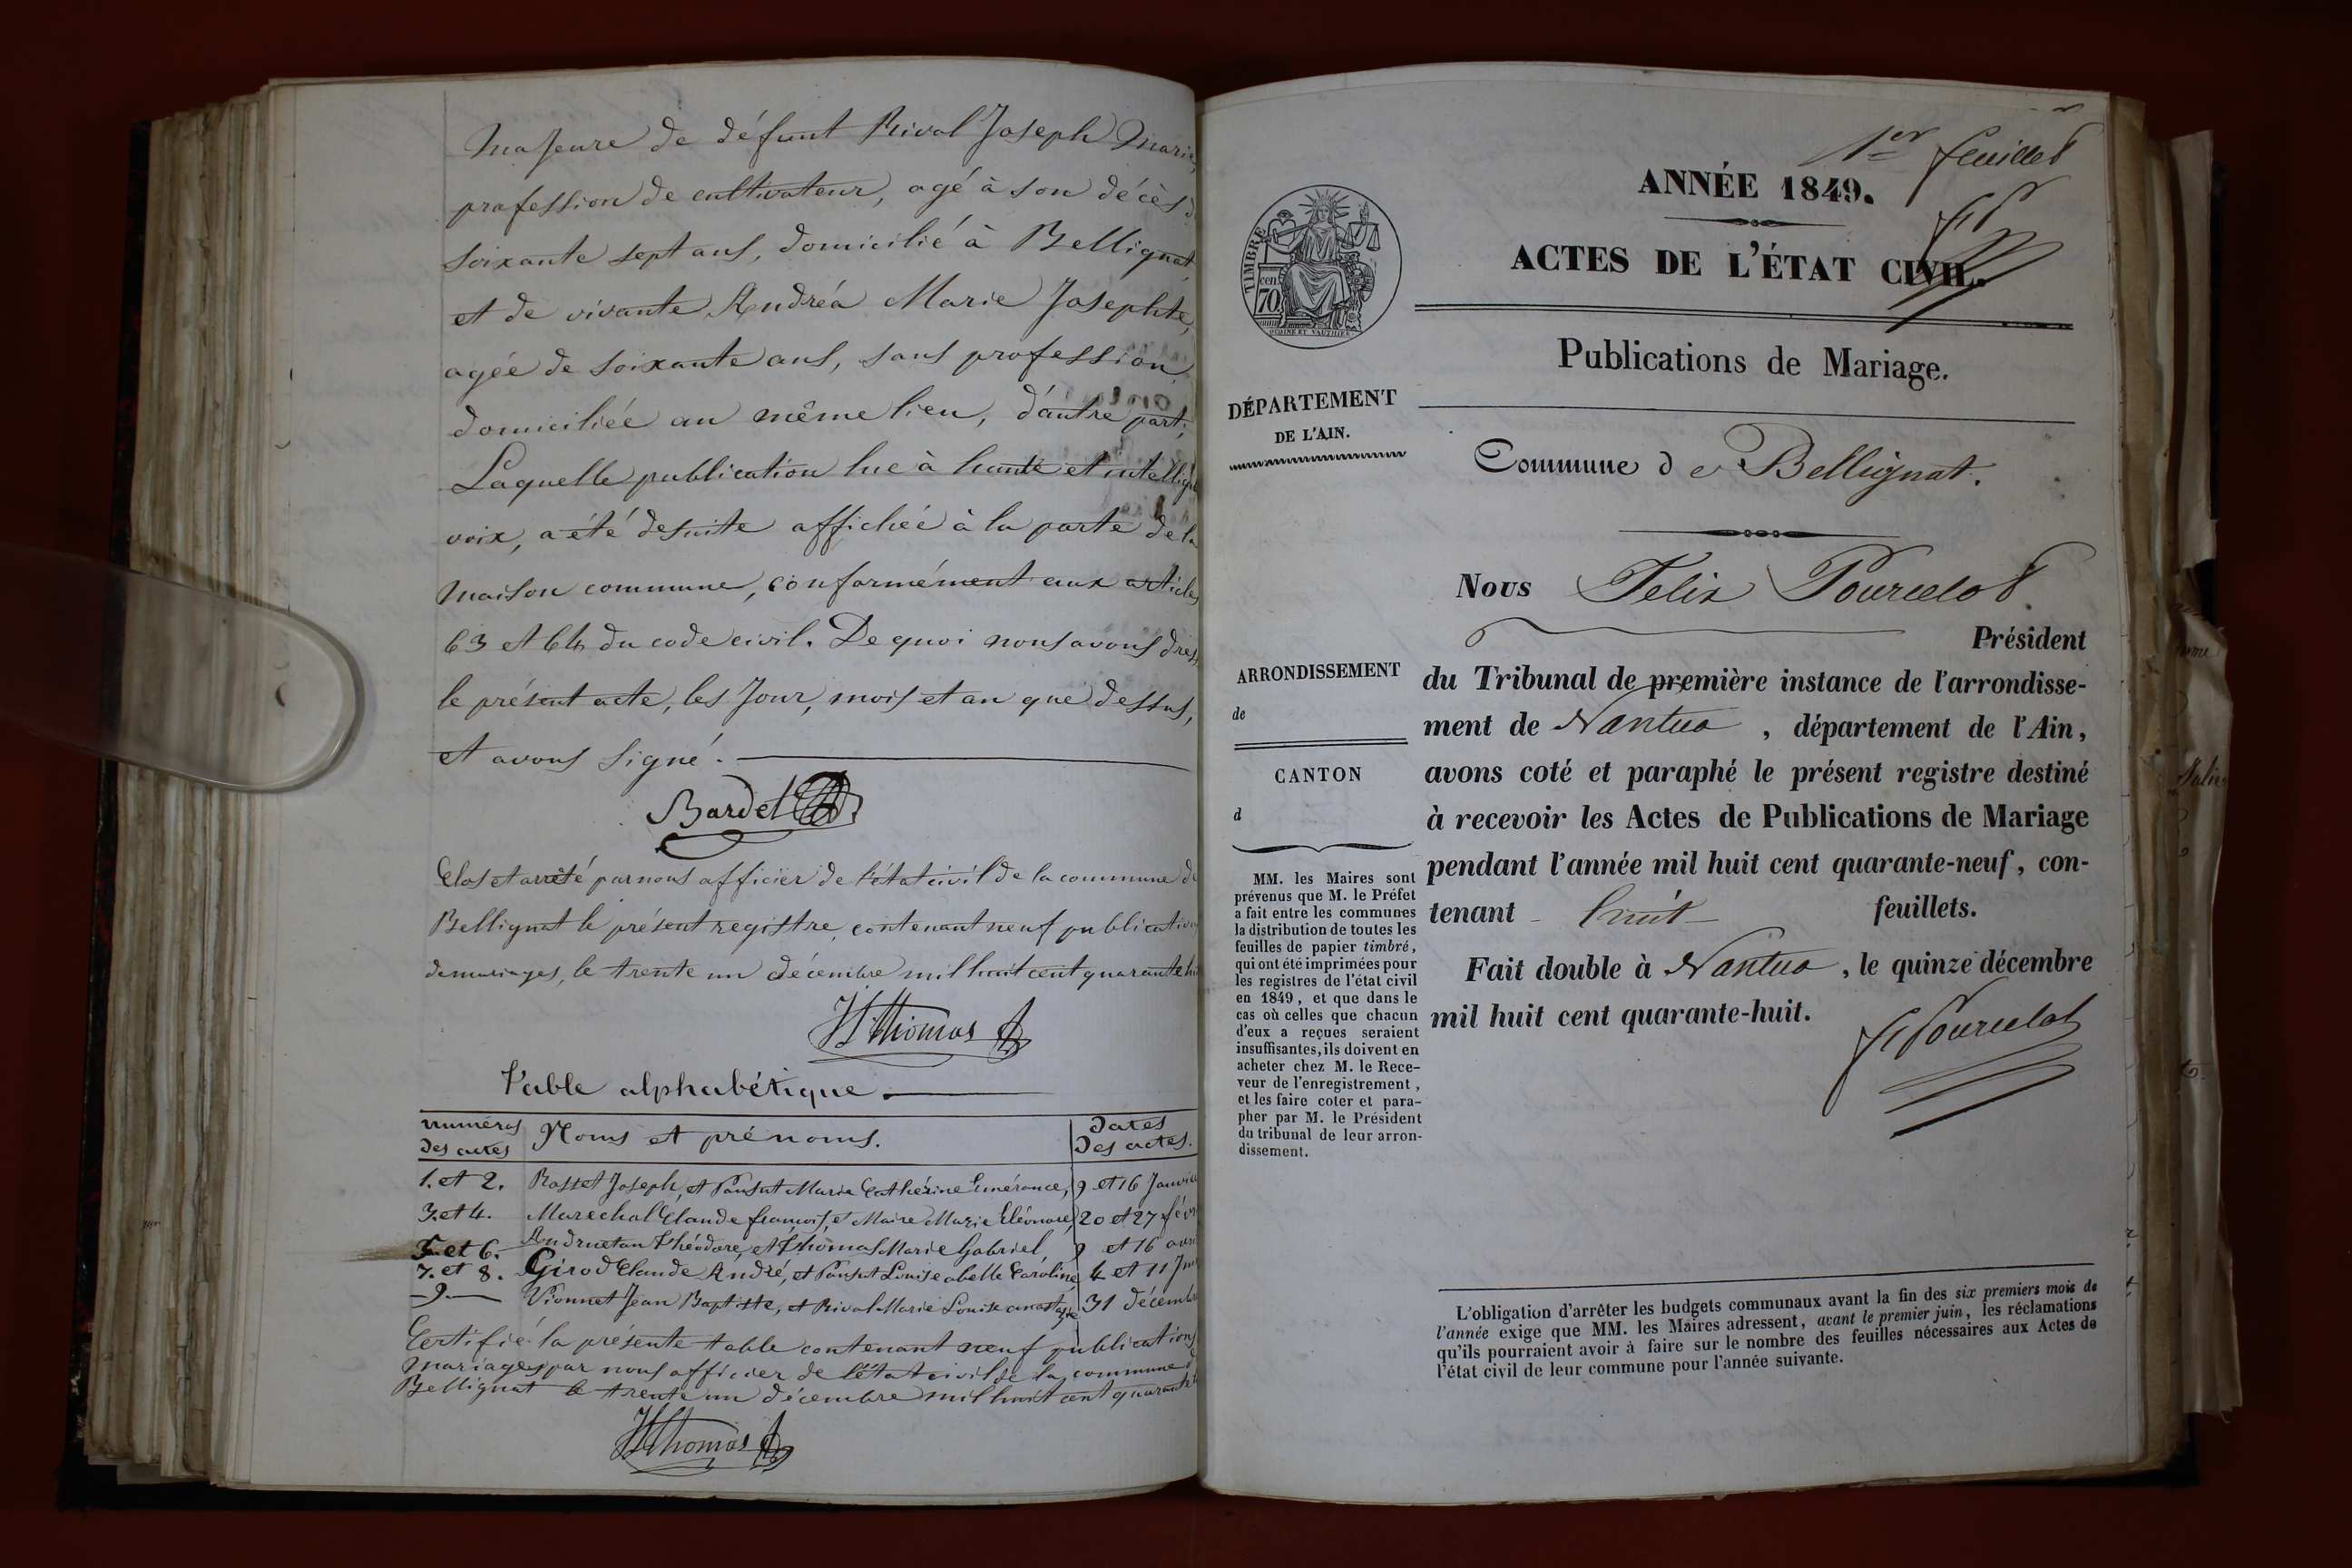 majeure de défunt Rival Joseph Marie,
profession de cultivateur, agé à son décès d
soixante sept ans, domicilié à Bellignat
et de vivante Andréa Marie Josephte,
agée de soixante ans, sans profession,
domiciliée au même lieu, d'autre part;
Laquelle publication lue à haute et intelligi
voix, a été desuite affichée à la porte de la
maison commune, conformément aux articles
63 et 64 du code civil. De quoi nous avons dres
le présent acte, les jour, mois et an que dessus,
et avons signé.
Bardet
Clos et arrêté par nous officier de l'état civil de la commune de
Bellignat le présent registre, contenant neuf publications
de mariages, le trente un décembre mil huit cent quarante hui
Thomas
Table alphabétique.
numéros des actes Noms et prénoms. Dates des actes.
1. et 2. Rosset Joseph, et Pansut Marie Cathérine Emérance, 9 et 16 Janvier
3. et 4. Marechal Claude françois, et Maire Marie Eléonore, 20 et 27 févr
5 et 6. Andruetan théodore, et Thomas Marie Gabriel, 9 et 16 avri
7. et 8. Girod Claude André, et Pansut Louise abelle Caroline, 4 et 11 Jui
9 Vionnet Jean Baptiste, et Rival Marie Louise anastazie 31 décembr
Certifié la présente table contenant neuf publications
mariages par nous officier de l'état civil de la commune d
Bellignat le trente un décembre mil huit cent quarante h
Thomas
1er feuillet
ANNÉE 1849.
ACTES DE L'ÉTAT CIVIL.
TIMBRE
cen
70
Publications de Mariage.
DÉPARTEMENT
DE L'AIN.
Commune de Bellignat.
Nous Felix Pourcelot
Président
ARRONDISSEMENT
de
CANTON
d
du Tribunal de première instance de l'arrondisse-
ment de Nantua, département de l'Ain,
avons coté et paraphé le présent registre destiné
à recevoir les Actes de Publications de Mariage
pendant l'année mil huit cent quarante-neuf, con-
tenant huit feuillets.
Fait double à Nantua, le quinze décembre
mil huit cent quarante-huit.
F Pourcelot
MM. les Maires sont
prévenus que M. le Préfet
a fait entre les communes
la distribution de toutes les
feuilles de papier timbré,
qui ont été imprimées pour
les registres de l'état civil
en 1849, et que dans le
cas où celles que chacun
d'eux a reçues seraient
insuffisantes, ils doivent en
acheter chez M. le Rece-
veur de l'enregistrement,
et les faire coter et para-
pher par M. le Président
du tribunal de leur arron-
dissement.
L'obligation d'arrêter les budgets communaux avant la fin des six premiers mois de
l'année exige que MM. les Maires adressent, avant le premier juin, les réclamations
qu'ils pourraient avoir à faire sur le nombre des feuilles nécessaires aux Actes de
l'état civil de leur commune pour l'année suivante.